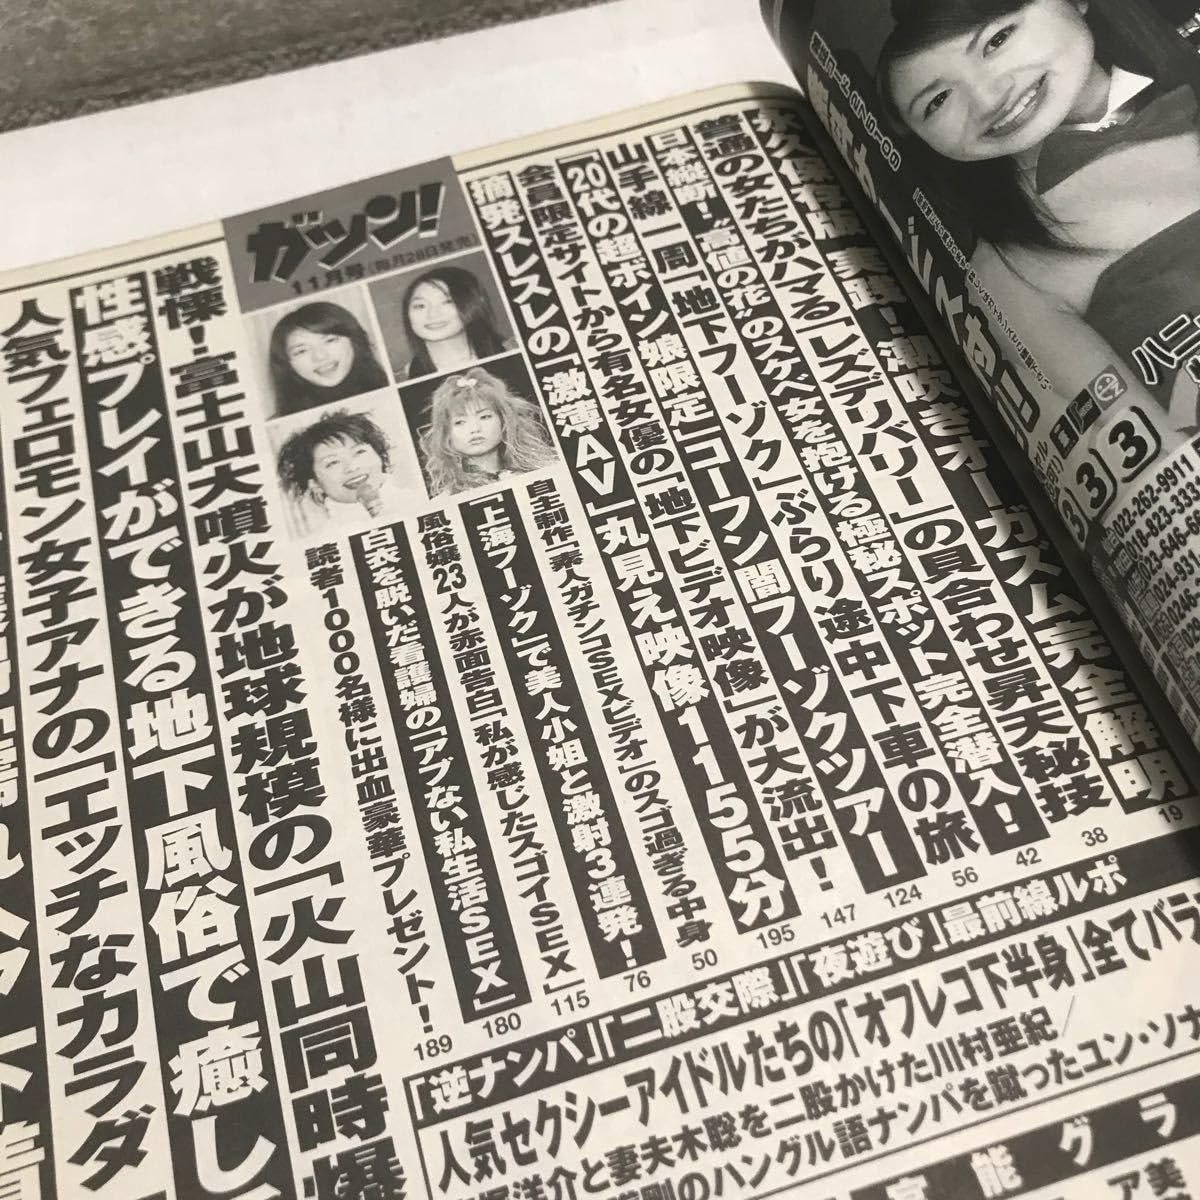 ガツン!
11月号(毎月28日発売)
永久保存版 実践!潮吹きオーガズム完全解明
19
普通の女たちがハマる「レズデリバリー」の貝合わせ昇天秘技
38
日本縦断!“高値の花”のスケベ女を抱ける極秘スポット完全潜入!
42
山手線一周「地下フーゾク」ぶらり途中下車の旅
56
「20代の超ボイン娘限定」コーフン闇フーゾクツアー
124
会員限定サイトから有名女優の「地下ビデオ映像」が大流出!
147
摘発スレスレの「激薄AV」丸見え映像115分
195
自主制作「素人ガチンコSEXビデオ」のスゴ過ぎる中身
50
「上海フーゾク」で美人小姐と激射3連発!
76
風俗嬢23人が赤面告白「私が感じたスゴイSEX」
115
白衣を脱いだ看護婦の「アブない私生活SEX」
180
読者1000名様に出血豪華プレゼント!
189
戦慄!富士山大噴火が地球規模の「火山同時爆
性感プレイができる地下風俗で癒し
人気フェロモン女子アナの「エッチなカラダ
「逆ナンパ」「二股交際」「夜遊び」最前線ルポ
人気セクシーアイドルたちの「オフレコ下半身」全てバラ
洋介と妻夫木聡を二股かけた川村亜紀/
剛のハングル語ナンパを蹴ったユン・ソナ
能グラ
ア美
ハニ
333
022-262-9911
018-823-333
023-646-6
024-931
0246